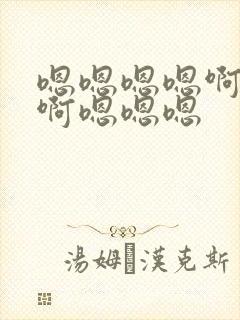 嗯嗯嗯嗯啊
啊嗯嗯嗯
湯姆漢克斯